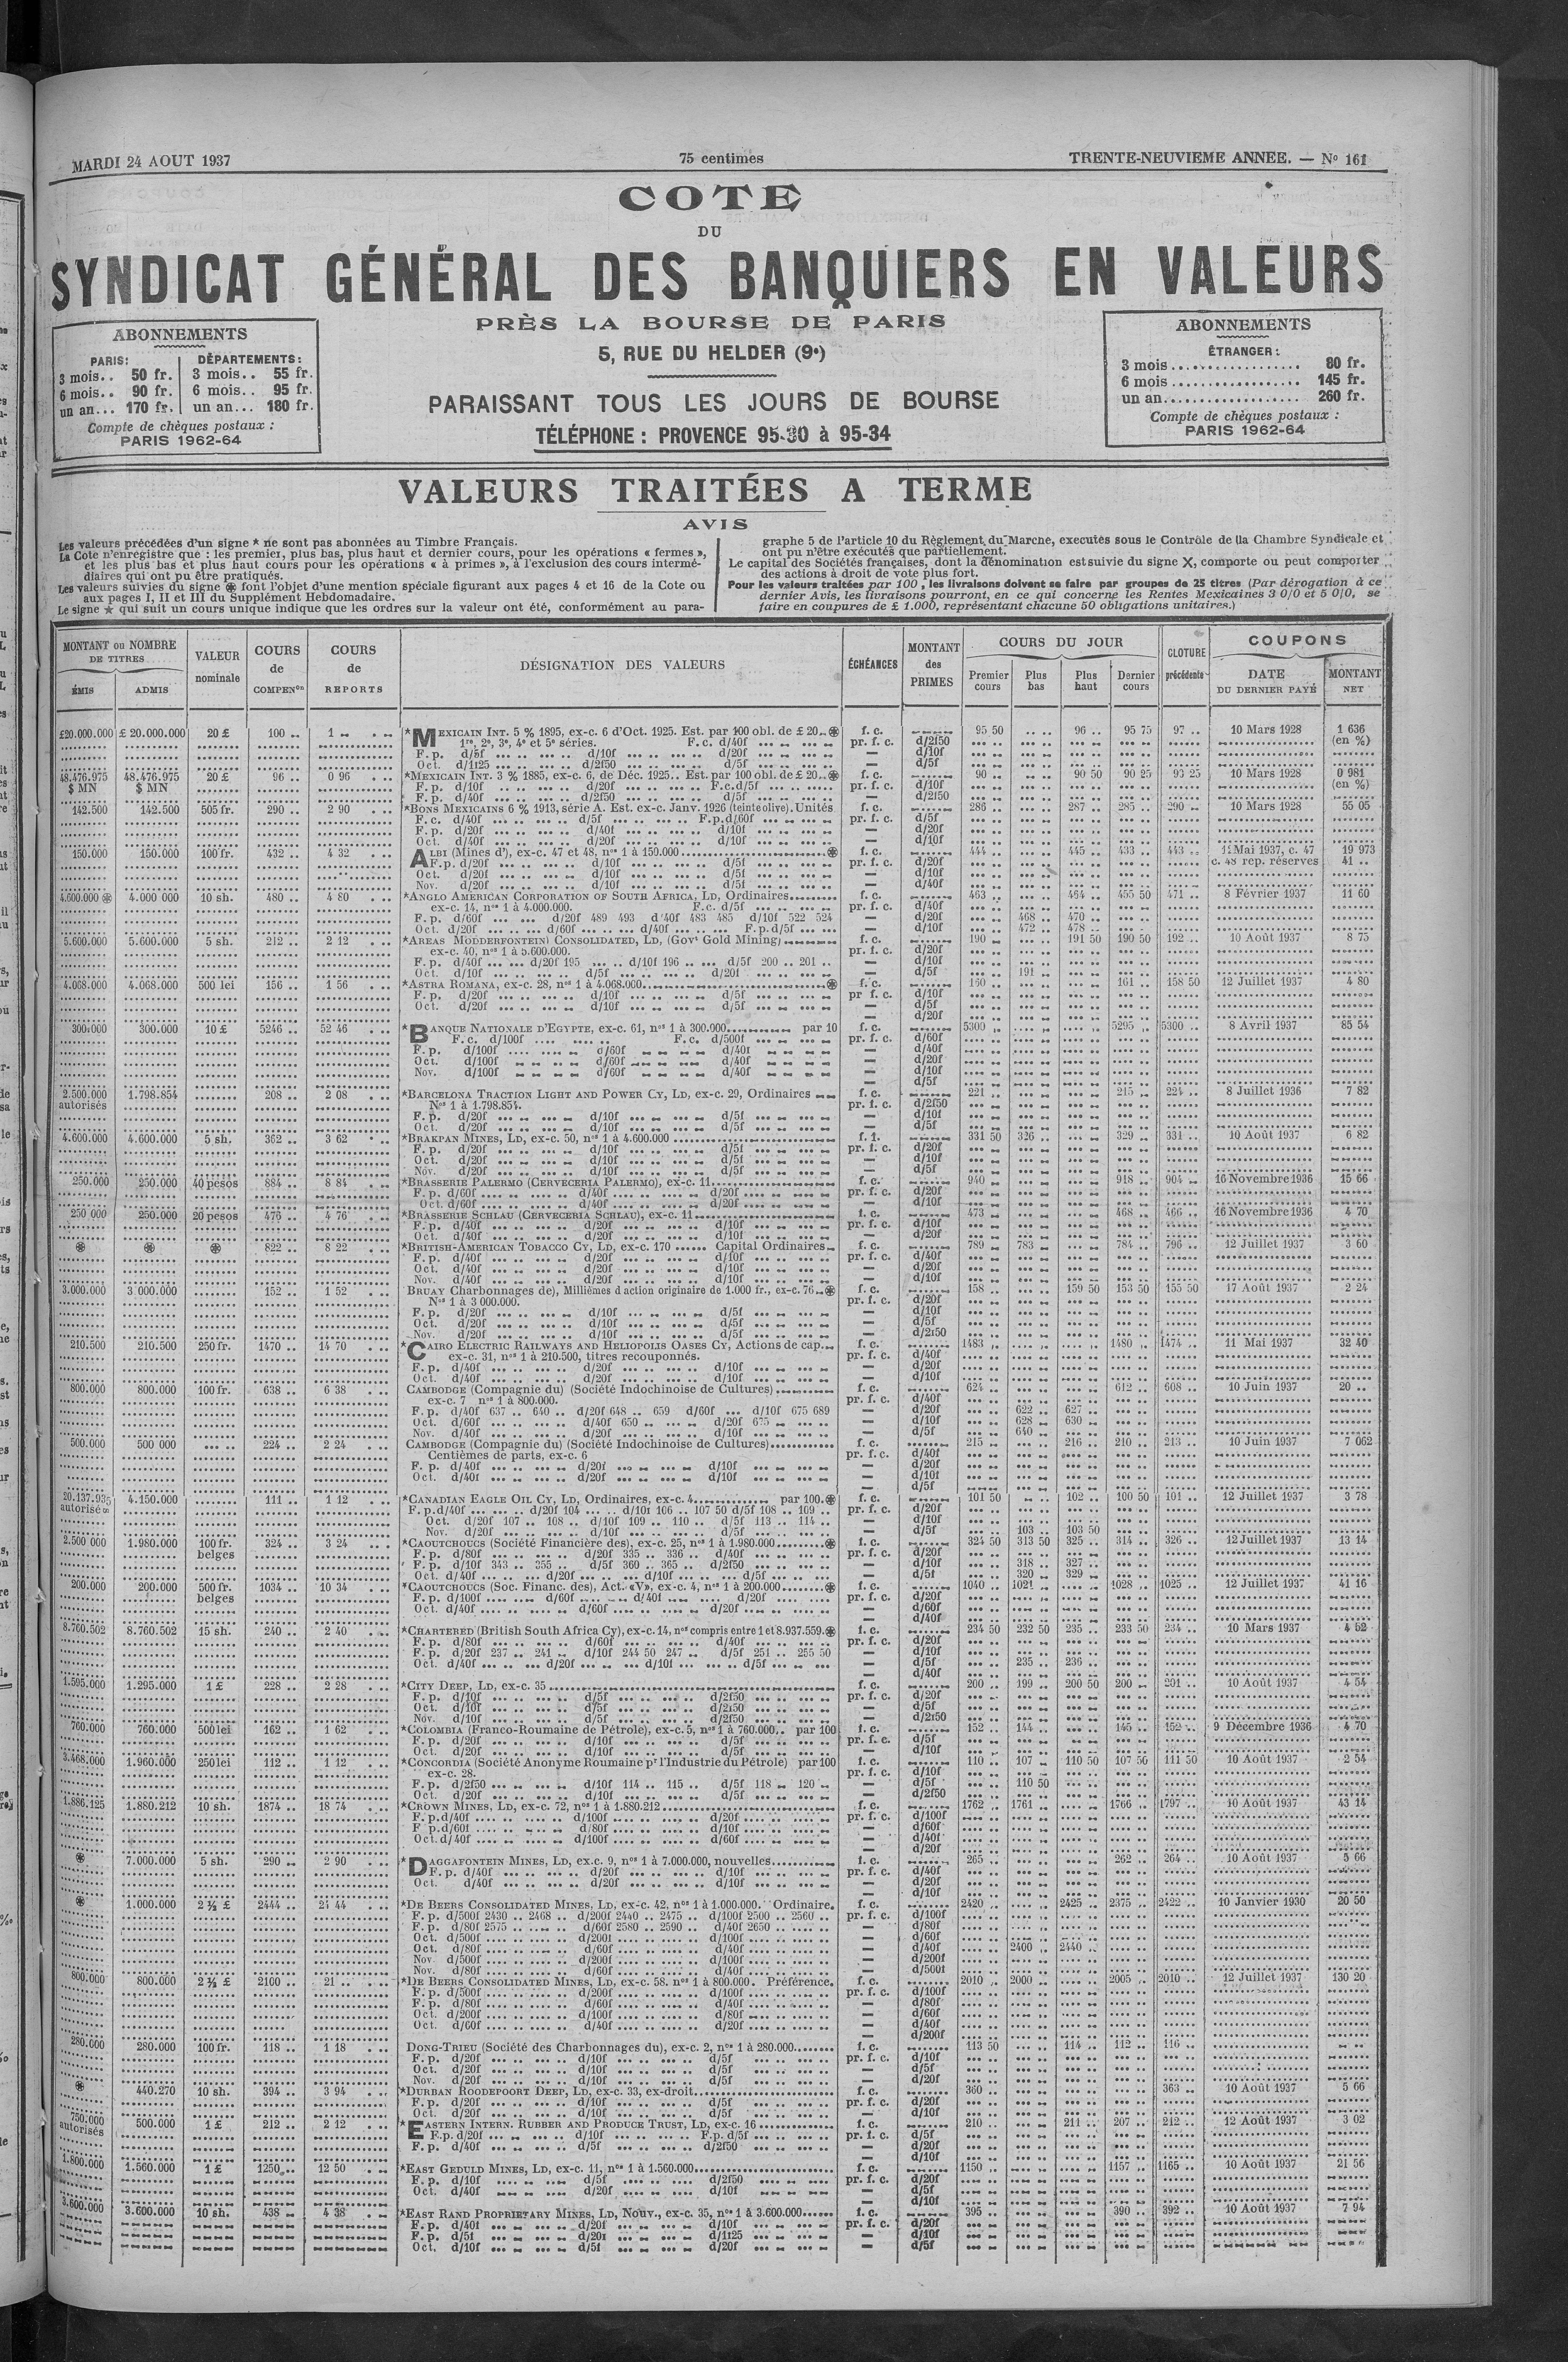 MARDI 24 AOUT 1937
75 centimes
TRENTE-NEUVIEME ANNEE. — No 161
COTE
DU
SYNDICAT GÉNÉRAL DES BANQUIERS EN VALEURS
PRÈS LA BOURSE DE PARIS
5, RUE DU HELDER (9e)
PARAISSANT TOUS LES JOURS DE BOURSE
TÉLÉPHONE : PROVENCE 95-30 à 95-34
ABONNEMENTS
PARIS: DÉPARTEMENTS:
3 mois.. 50 fr. 3 mois.. 55 fr.
6 mois.. 90 fr. 6 mois.. 95 fr.
un an... 170 fr. un an... 180 fr.
Compte de chèques postaux :
PARIS 1962-64
ABONNEMENTS
ÉTRANGER :
3 mois .................. 80 fr.
6 mois .................. 145 fr.
un an.................. 260 fr.
Compte de chèques postaux :
PARIS 1962-64
VALEURS TRAITÉES A TERME
AVIS
Les valeurs précédées d'un signe * ne sont pas abonnées au Timbre Français.
La Cote n'enregistre que : les premier, plus bas, plus haut et dernier cours, pour les opérations « fermes »,
et les plus bas et plus haut cours pour les opérations « à primes », à l'exclusion des cours intermé-
diaires qui ont pu être pratiqués.
Les valeurs suivies du signe ⊛ font l'objet d'une mention spéciale figurant aux pages 4 et 16 de la Cote ou
aux pages I, II et III du Supplément Hebdomadaire.
Le signe ★ qui suit un cours unique indique que les ordres sur la valeur ont été, conformément au para-
graphe 5 de l'article 10 du Règlement du Marche, executés sous le Contrôle de lla Chambre Syndicale et
ont pu n'être exécutés que partiellement.
Le capital des Sociétés françaises, dont la dénomination est suivie du signe X, comporte ou peut comporter
des actions à droit de vote plus fort.
Pour les valeurs traitées par 100, les livraisons doivent se faire par groupes de 25 titres (Par dérogation à ce
dernier Avis, les livraisons pourront, en ce qui concerne les Rentes Mexicaines 3 0/0 et 5 0/0, se
faire en coupures de £ 1.000, représentant chacune 50 obligations unitaires.)
MONTANT ou NOMBRE DE TITRES
ÉMIS ADMIS
VALEUR nominale
COURS de COMPENon
COURS de REPORTS
DÉSIGNATION DES VALEURS
ÉCHÉANCES
MONTANT des PRIMES
COURS DU JOUR
Premier cours Plus bas Plus haut Dernier cours
CLOTURE précédente
COUPONS
DATE DU DERNIER PAYÉ MONTANT NET
£20.000.000 £ 20.000.000 20 £ 100 .. 1 .. *MEXICAIN INT. 5 % 1895, ex-c. 6 d'Oct. 1925. Est. par 100 obl. de £ 20..⊛ f. c. 95 50 96 .. 95 75 97 .. 10 Mars 1928 1 636
1re, 2e, 3e, 4e et 5e séries. F.c. d/40f pr. f. c. d/2f50 (en %)
F.p. d/5f d/10f d/20f — d/10f
Oct. d/1f25 d/2f50 d/5f — d/5f
48.476.975 48.476.975 20 £ 96 .. 0 96 *MEXICAIN INT. 3 % 1885, ex-c. 6, de Déc. 1925.. Est. par 100 obl. de £ 20..⊛ f. c. 90 .. 90 50 90 25 93 25 10 Mars 1928 0 981
$ MN $ MN F.p. d/10f d/20f F.c.d/5f pr. f. c. d/10f (en %)
F.p. d/40f d/2f50 d/5f — d/2f50
142.500 142.500 505 fr. 290 .. 2 90 *BONS MEXICAINS 6 % 1913, série A. Est. ex-c. Janv. 1926 (teinte olive). Unités f. c. 286 .. 287 .. 285 .. 290 .. 10 Mars 1928 55 05
F.c. d/40f d/5f F.p.d/60f pr. f. c. d/5f
F.p. d/20f d/40f d/10f — d/20f
Oct. d/40f d/20f d/10f — d/10f
150.000 150.000 100 fr. 432 .. 4 32 ALBI (Mines d'), ex-c. 47 et 48, nos 1 à 150.000 ⊛ f. c. 444 .. 445 .. 433 .. 443 .. 11 Mai 1937, c. 47 19 973
F.p. d/20f d/10f d/5f pr. f. c. d/20f c. 48 rep. réserves 41 ..
Oct. d/20f d/10f d/5f — d/10f
Nov. d/20f d/10f d/5f — d/40f
4.600.000 ⊛ 4.000 000 10 sh. 480 .. 4 80 *ANGLO AMERICAN CORPORATION OF SOUTH AFRICA, LD, Ordinaires f. c. 463 .. 464 .. 455 50 471 .. 8 Février 1937 11 60
ex-c. 14, nos 1 à 4.000.000. F.c. d/5f pr. f. c. d/40f
F.p. d/60f d/20f 489 493 d/40f 483 485 d/10f 522 524 — d/20f 468 .. 470 ..
Oct. d/20f d/60f d/40f F.p.d/5f — d/10f 472 .. 478 ..
5.600.000 5.600.000 5 sh. 212 .. 2 12 *AREAS MODDERFONTEIN) CONSOLIDATED, LD, (Govt Gold Mining) f. c. 190 .. 191 50 190 50 192 .. 10 Août 1937 8 75
ex-c. 40, nos 1 à 5.600.000. pr. f. c. d/20f
F.p. d/40f d/20f 195 d/10f 196 d/5f 200 .. 201 .. — d/10f
Oct. d/10f d/5f d/20f — d/5f 191 ..
4.068.000 4.068.000 500 lei 156 .. 1 56 *ASTRA ROMANA, ex-c. 28, nos 1 à 4.068.000 ⊛ f. c. 160 .. 161 .. 158 50 12 Juillet 1937 4 80
F.p. d/20f d/10f d/5f pr f. c. d/10f
Oct. d/20f d/10f d/5f — d/5f
— d/20f
300.000 300.000 10 £ 5246 .. 52 46 *BANQUE NATIONALE D'EGYPTE, ex-c. 61, nos 1 à 300.000 par 10 f. c. 5300 .. 5295 .. 5300 .. 8 Avril 1937 85 54
F.c. d/100f F.c. d/500f pr. f. c. d/60f
F.p. d/100f d/60f d/40f — d/40f
Oct. d/100f d/60f d/40f — d/20f
Nov. d/100f d/60f d/40f — d/10f
— d/5f
2.500.000 1.798.854 208 .. 2 08 *BARCELONA TRACTION LIGHT AND POWER CY, LD, ex-c. 29, Ordinaires f. c. 221 .. 215 .. 224 .. 8 Juillet 1936 7 82
autorisés Nos 1 à 1.798.854. pr. f. c. d/2f50
F.p. d/20f d/10f d/5f — d/10f
Oct. d/20f d/10f d/5f — d/5f
4.600.000 4.600.000 5 sh. 362 .. 3 62 *BRAKPAN MINES, LD, ex-c. 50, nos 1 à 4.600.000 f. 1. 331 50 326 .. 329 .. 331 .. 10 Août 1937 6 82
F.p. d/20f d/10f d/5f pr. f. c. d/20f
Oct. d/20f d/10f d/5f — d/10f
Nov. d/20f d/10f d/5f — d/5f
250.000 250.000 40 pesos 884 .. 8 84 *BRASSERIE PALERMO (CERVECERIA PALERMO), ex-c. 11 f. c. 940 .. 918 .. 904 .. 16 Novembre 1936 15 66
F.p. d/60f d/40f d/20f pr. f. c. d/20f
Oct. d/60f d/40f d/20f — d/10f
250 000 250.000 20 pesos 476 .. 4 76 *BRASSERIE SCHLAU (CERVECERIA SCHLAU), ex-c. 11 f. c. 473 .. 468 .. 466 .. 16 Novembre 1936 4 70
F.p. d/40f d/20f d/10f pr. f. c. d/10f
Oct. d/40f d/20f d/10f — d/20f
⊛ ⊛ ⊛ 822 .. 8 22 *BRITISH-AMERICAN TOBACCO CY, LD, ex-c. 170 ...... Capital Ordinaires f. c. 789 .. 783 .. 784 .. 796 .. 12 Juillet 1937 3 60
F.p. d/40f d/20f d/10f pr. f. c. d/40f
Oct. d/40f d/20f d/10f — d/20f
Nov. d/40f d/20f d/10f — d/10f
3.000.000 3 000.000 152 .. 1 52 BRUAY Charbonnages de), Millièmes d action originaire de 1.000 fr., ex-c. 76..⊛ f. c. 158 .. 159 50 153 50 155 50 17 Août 1937 2 24
Nos 1 à 3 000.000. pr. f. c. d/20f
F.p. d/20f d/10f d/5f — d/10f
Oct. d/20f d/10f d/5f — d/5f
Nov. d/20f d/10f d/5f — d/2f50
210.500 210.500 250 fr. 1470 .. 14 70 *CAIRO ELECTRIC RAILWAYS AND HELIOPOLIS OASES CY, Actions de cap. f. c. 1483 .. 1480 .. 1474 .. 11 Mai 1937 32 40
ex-c. 31, nos 1 à 210.500, titres recouponnés. pr. f. c. d/40f
F.p. d/40f d/20f d/10f — d/20f
Oct. d/40f d/20f d/10f — d/10f
800.000 800.000 100 fr. 638 .. 6 38 CAMBODGE (Compagnie du) (Société Indochinoise de Cultures) f. c. 624 .. 612 .. 608 .. 10 Juin 1937 20 ..
ex-c. 7 nos 1 à 800.000. pr. f. c. d/40f
F.p. d/40f 637 .. 640 .. d/20f 648 .. 659 d/60f d/10f 675 689 — d/20f 622 .. 627 ..
Oct. d/60f d/40f 650 d/20f 675 — d/10f 628 .. 630 ..
Nov. d/40f d/20f d/10f — d/5f 640 ..
500.000 500 000 224 .. 2 24 CAMBODGE (Compagnie du) (Société Indochinoise de Cultures) f. c. 215 .. 216 .. 210 .. 213 .. 10 Juin 1937 7 062
Centièmes de parts, ex-c. 6 pr. f. c. d/40f
F.p. d/40f d/20f d/10f — d/20f
Oct. d/40f d/20f d/10f — d/10f
— d/5f
20.137.935 4.150.000 111 .. 1 12 *CANADIAN EAGLE OIL CY, LD, Ordinaires, ex-c. 4 par 100.⊛ f. c. 101 50 102 .. 100 50 101 .. 12 Juillet 1937 3 78
autorisés F.p.d/40f d/20f 104 d/10f 106 .. 107 50 d/5f 108 .. 109 .. pr. f. c. d/20f
Oct. d/20f 107 .. 108 .. d/10f 109 .. 110 .. d/5f 113 .. 114 .. — d/10f
Nov. d/20f d/10f d/5f — d/5f 103 .. 103 50
2.500 000 1.980.000 100 fr. 324 .. 3 24 *CAOUTCHOUCS (Société Financière des), ex-c. 25, nos 1 à 1.980.000 ⊛ f. c. 324 50 313 50 325 .. 314 .. 326 .. 12 Juillet 1937 13 14
belges F.p. d/80f d/20f 335 .. 336 .. d/40f pr. f. c. d/20f
F.p. d/10f 343 .. 355 .. d/5f 360 .. 365 .. d/2f50 — d/10f 318 .. 327 ..
Oct. d/40f d/20f d/10f d/5f — d/5f 320 .. 329 ..
200.000 200.000 500 fr. 1034 .. 10 34 *CAOUTCHOUCS (Soc. Financ. des), Act. «V», ex-c. 4, nos 1 à 200.000 ⊛ f. c. 1040 .. 1021 .. 1028 .. 1025 .. 12 Juillet 1937 41 16
belges F.p. d/100f d/60f d/40f d/20f pr. f. c. d/20f
Oct. d/40f d/60f d/20f — d/60f
— d/40f
8.760.502 8.760.502 15 sh. 240 .. 2 40 *CHARTERED (British South Africa Cy), ex-c. 14, nos compris entre 1 et 8.937.559.⊛ f. c. 234 50 232 50 235 .. 233 50 234 .. 10 Mars 1937 4 52
F.p. d/80f d/60f d/40f pr. f. c. d/20f
F.p. d/20f 237 .. 241 .. d/10f 244 50 247 .. d/5f 251 .. 255 50 — d/10f
Oct. d/40f d/20f d/10f d/5f — d/5f 235 .. 236 ..
— d/40f
1.595.000 1.295.000 1 £ 228 .. 2 28 *CITY DEEP, LD, ex-c. 35 f. c. 200 .. 199 .. 200 50 200 .. 201 .. 10 Août 1937 4 54
F.p. d/10f d/5f d/2f50 pr. f. c. d/20f
Oct. d/10f d/5f d/2f50 — d/5f
Nov. d/10f d/5f d/2f50 — d/2f50
760.000 760.000 500 lei 162 .. 1 62 *COLOMBIA (Franco-Roumaine de Pétrole), ex-c. 5, nos 1 à 760.000.. par 100 f. c. 152 .. 144 .. 145 .. 152 .. 9 Décembre 1936 4 70
F.p. d/20f d/10f d/5f pr. f. c. d/5f
Oct. d/20f d/10f d/5f — d/10f
3.468.000 1.960.000 250 lei 112 .. 1 12 *CONCORDIA (Société Anonyme Roumaine pr l'Industrie du Pétrole) par 100 f. c. 110 .. 107 .. 110 50 107 50 111 50 10 Août 1937 2 54
ex-c. 28. pr. f. c. d/10f
F.p. d/2f50 d/10f 114 .. 115 .. d/5f 118 .. 120 .. — d/5f 110 50
Oct. d/20f d/10f d/5f — d/2f50
1.886.125 1.880.212 10 sh. 1874 .. 18 74 *CROWN MINES, LD, ex-c. 72, nos 1 à 1.880.212 f. c. 1762 .. 1761 .. 1766 .. 1797 .. 10 Août 1937 43 14
F.p. d/40f d/100f d/20f pr. f. c. d/100f
F p.d/60f d/80f d/10f — d/60f
Oct. d/40f d/100f d/60f — d/40f
— d/20f
⊛ 7.000.000 5 sh. 290 .. 2 90 *DAGGAFONTEIN MINES, LD, ex.c. 9, nos 1 à 7.000.000, nouvelles f. c. 265 .. 262 .. 264 .. 10 Août 1937 5 66
F.p. d/40f d/20f d/10f pr. f. c. d/40f
Oct. d/40f d/20f d/10f — d/20f
— d/10f
⊛ 1.000.000 2 ½ £ 2444 .. 24 44 *DE BEERS CONSOLIDATED MINES, LD, ex-c. 42, nos 1 à 1.000.000. Ordinaire. f. c. 2420 .. 2425 .. 2375 .. 2422 .. 10 Janvier 1930 20 50
F.p. d/500f 2430 .. 2468 .. d/200f 2440 .. 2475 .. d/100f 2500 .. 2560 .. pr. f. c. d/100f
F.p. d/80f 2575 d/60f 2580 .. 2590 .. d/40f 2650 — d/80f
Oct. d/500f d/200f d/100f — d/60f
Oct. d/80f d/60f d/40f — d/40f 2400 .. 2440 ..
Nov. d/500f d/200f d/100f — d/200f
Nov. d/80f d/60f d/40f — d/500f
800.000 800.000 2 ½ £ 2100 .. 21 .. *DE BEERS CONSOLIDATED MINES, LD, ex-c. 58. nos 1 à 800.000. Préférence. f. c. 2010 .. 2000 .. 2005 .. 2010 .. 12 Juillet 1937 130 20
F.p. d/500f d/200f d/100f pr. f. c. d/100f
F.p. d/80f d/60f d/40f — d/80f
Oct. d/200f d/100f d/80f — d/60f
Oct. d/60f d/40f d/20f — d/40f
— d/200f
280.000 280.000 100 fr. 118 .. 1 18 DONG-TRIEU (Société des Charbonnages du), ex-c. 2, nos 1 à 280.000 f. c. 113 50 114 .. 112 .. 116 ..
F.p. d/20f d/10f d/5f pr. f. c. d/10f
Oct. d/20f d/10f d/5f — d/5f
Nov. d/20f d/10f d/5f — d/20f
⊛ 440.270 10 sh. 394 .. 3 94 *DURBAN ROODEPOORT DEEP, LD, ex-c. 33, ex-droit f. c. 360 .. 363 .. 10 Août 1937 5 66
F.p. d/20f d/10f d/5f pr. f. c. d/20f
Oct. d/20f d/10f d/5f — d/10f
750.000 500.000 1 £ 212 .. 2 12 *EASTERN INTERN. RUBBER AND PRODUCE TRUST, LD, ex-c. 16 f. c. 210 .. 211 .. 207 .. 212 .. 12 Août 1937 3 02
autorisés F.p. d/20f d/10f F.p. d/5f pr. f. c. d/5f
F.p. d/40f d/5f d/2f50 — d/20f
— d/10f
1.800.000 1.560.000 1 £ 1250 .. 12 50 *EAST GEDULD MINES, LD, ex-c. 11, nos 1 à 1.560.000 f. c. 1150 .. 1157 .. 1165 .. 10 Août 1937 21 56
F.p. d/10f d/5f d/2f50 pr. f. c. d/20f
Oct. d/40f d/20f d/10f — d/5f
— d/10f
3.600.000 3.600.000 10 sh. 438 .. 4 38 *EAST RAND PROPRIETARY MINES, LD, Nouv., ex-c. 35, nos 1 à 3.600.000 f. c. 395 .. 390 .. 392 .. 10 Août 1937 7 94
F.p. d/40f d/20f d/10f pr. f. c. d/20f
F.p. d/5f d/20f d/1f25 — d/10f
Oct. d/10f d/5f d/20f — d/5f